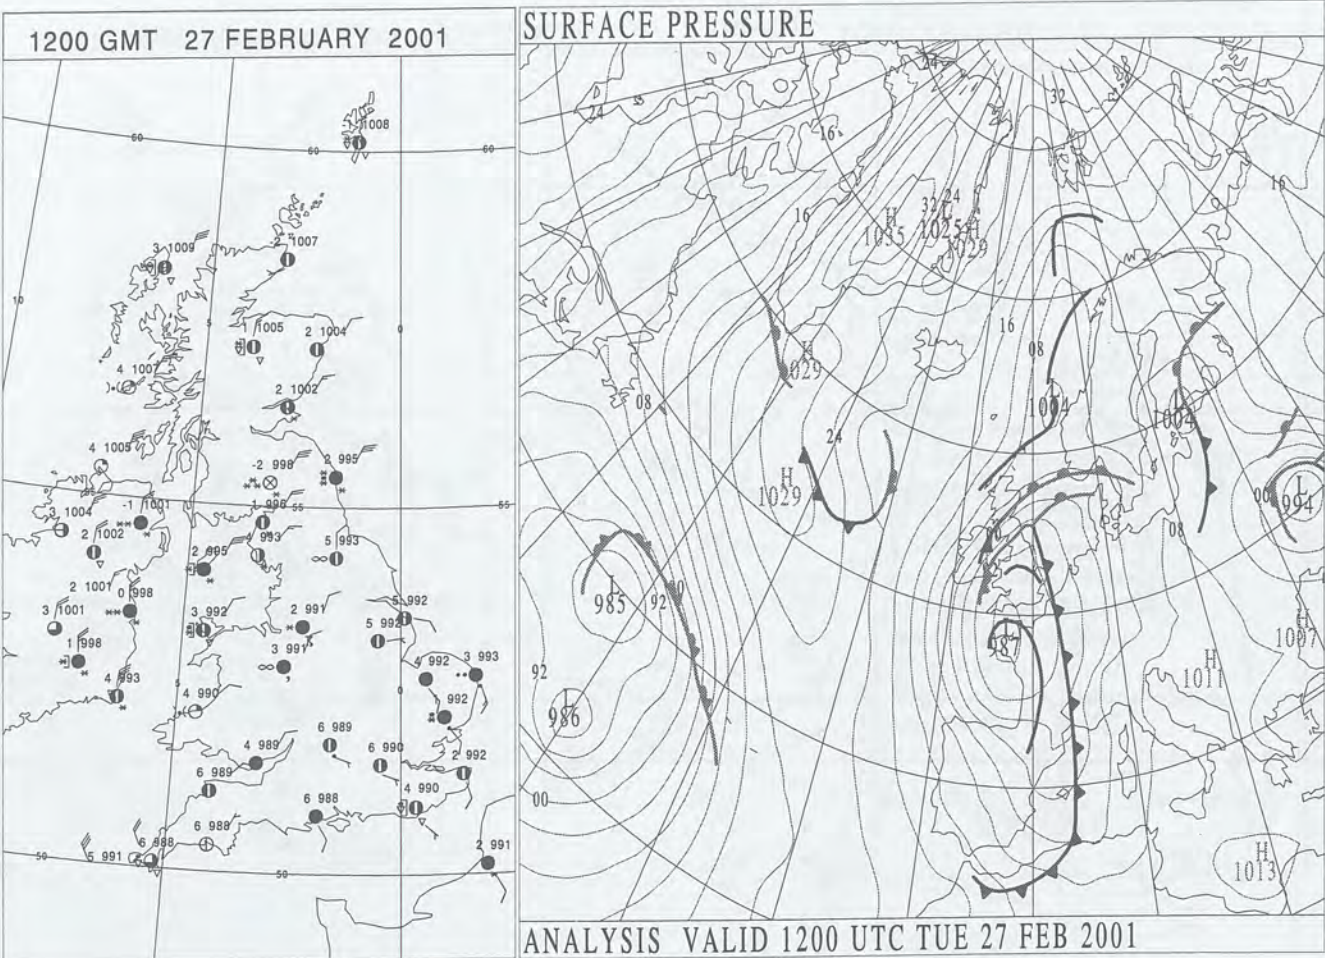 1200 GMT 27 FEBRUARY 2001
1008
60
60
60
3 1009
2 1007
10
5
0
1 1005
2 1004
4 1007
2 1002
4 1005
-2 998
2 995
55
55
3 1004
-1 1001
1 996
2 1002
2 995
4 993
5 993
2 1001
0 998
3 1001
3 992
2 991
5 992
5 992
1 998
3 991
4 992
3 993
4 993
5
4 990
0
1 992
6 989
4 989
6 990
2 992
6 989
4 990
6 988
6 988
6 988
5 991
2 991
50
50
SURFACE PRESSURE
24
32
24
16
16
16
32 24
H
1035
1025
H
1029
16
08
H
1029
08
L
1004
L
1004
24
H
1029
08
00
L
994
L
985
92
00
92
L
986
L
987
H
1007
H
1011
00
H
1013
ANALYSIS VALID 1200 UTC TUE 27 FEB 2001